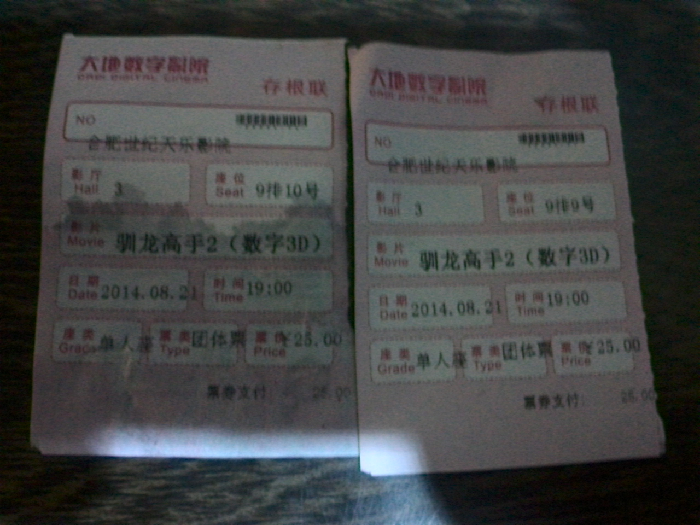 大地数字影院
DADI DIGITAL CINEMA
存根联
NO
合肥世纪天乐影院
影厅 Hall 3 座位 Seat 9排10号
影片 Movie 驯龙高手2（数字3D）
日期 Date 2014.08.21 时间 Time 19:00
座类 Grade 单人座 票类 Type 团体票 票价 Price ¥25.00
票券支付: 25.00
大地数字影院
DADI DIGITAL CINEMA
存根联
NO
合肥世纪天乐影院
影厅 Hall 3 座位 Seat 9排9号
影片 Movie 驯龙高手2（数字3D）
日期 Date 2014.08.21 时间 Time 19:00
座类 Grade 单人座 票类 Type 团体票 票价 Price ¥25.00
票券支付: 25.00